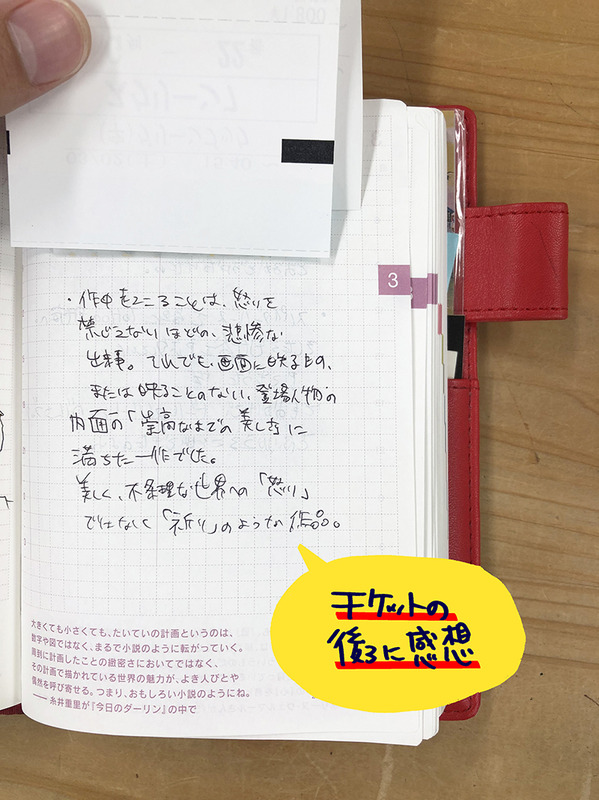 3
・作中起こることは、怒りを
禁じえないほどの、悲惨な
出来事。それでも、画面に映るもの、
または映ることのない、登場人物の
内面の「崇高なまでの美しさ」に
満ちた一作でした。
美しく、不条理な世界への「怒り」
ではなく「祈り」のような作品。
チケットの
後ろに感想
大きくても小さくても、たいていの計画というのは、
数字や図ではなく、まるで小説のように転がっていく。
周到に計画したことの緻密さにおいてではなく、
その計画で描かれている世界の魅力が、よき人びとや
偶然を呼び寄せる。つまり、おもしろい小説のようにね。
── 糸井重里が『今日のダーリン』の中で